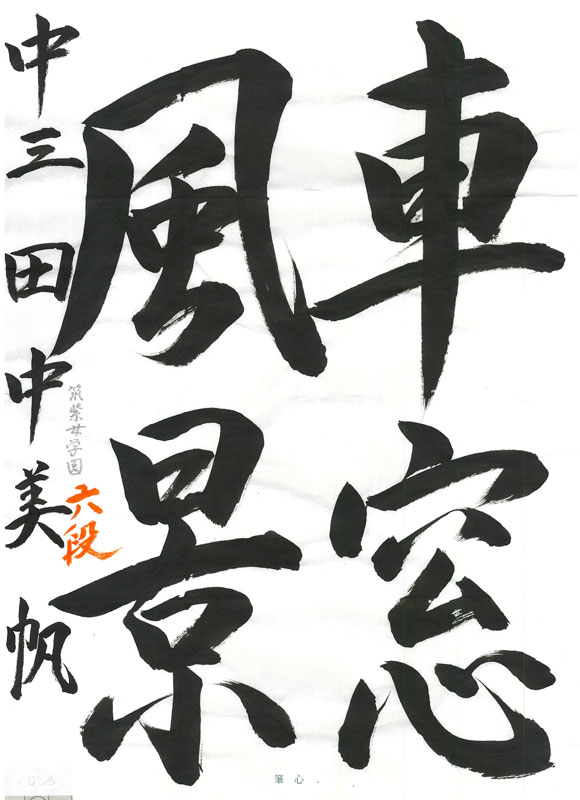 車窓
風景
中三 田中美帆
筑紫女学園
六段
筆心